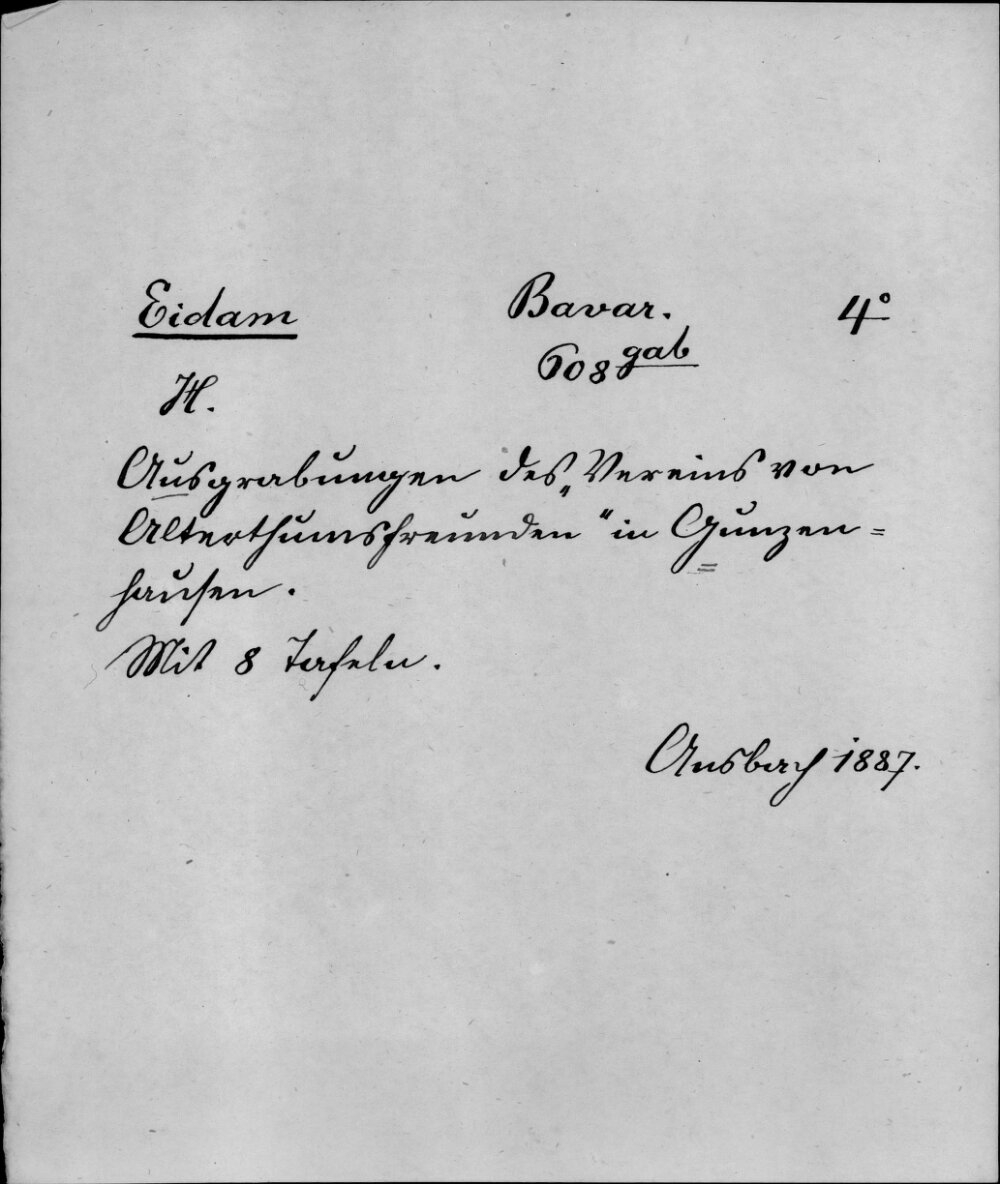 Eidam Bavar. 4°
608 gab
H.
Ausgrabungen des „Vereins von
Alterthumsfreunden“ in Gunzen=
hausen.
Mit 8 Tafeln.
Ansbach 1887.